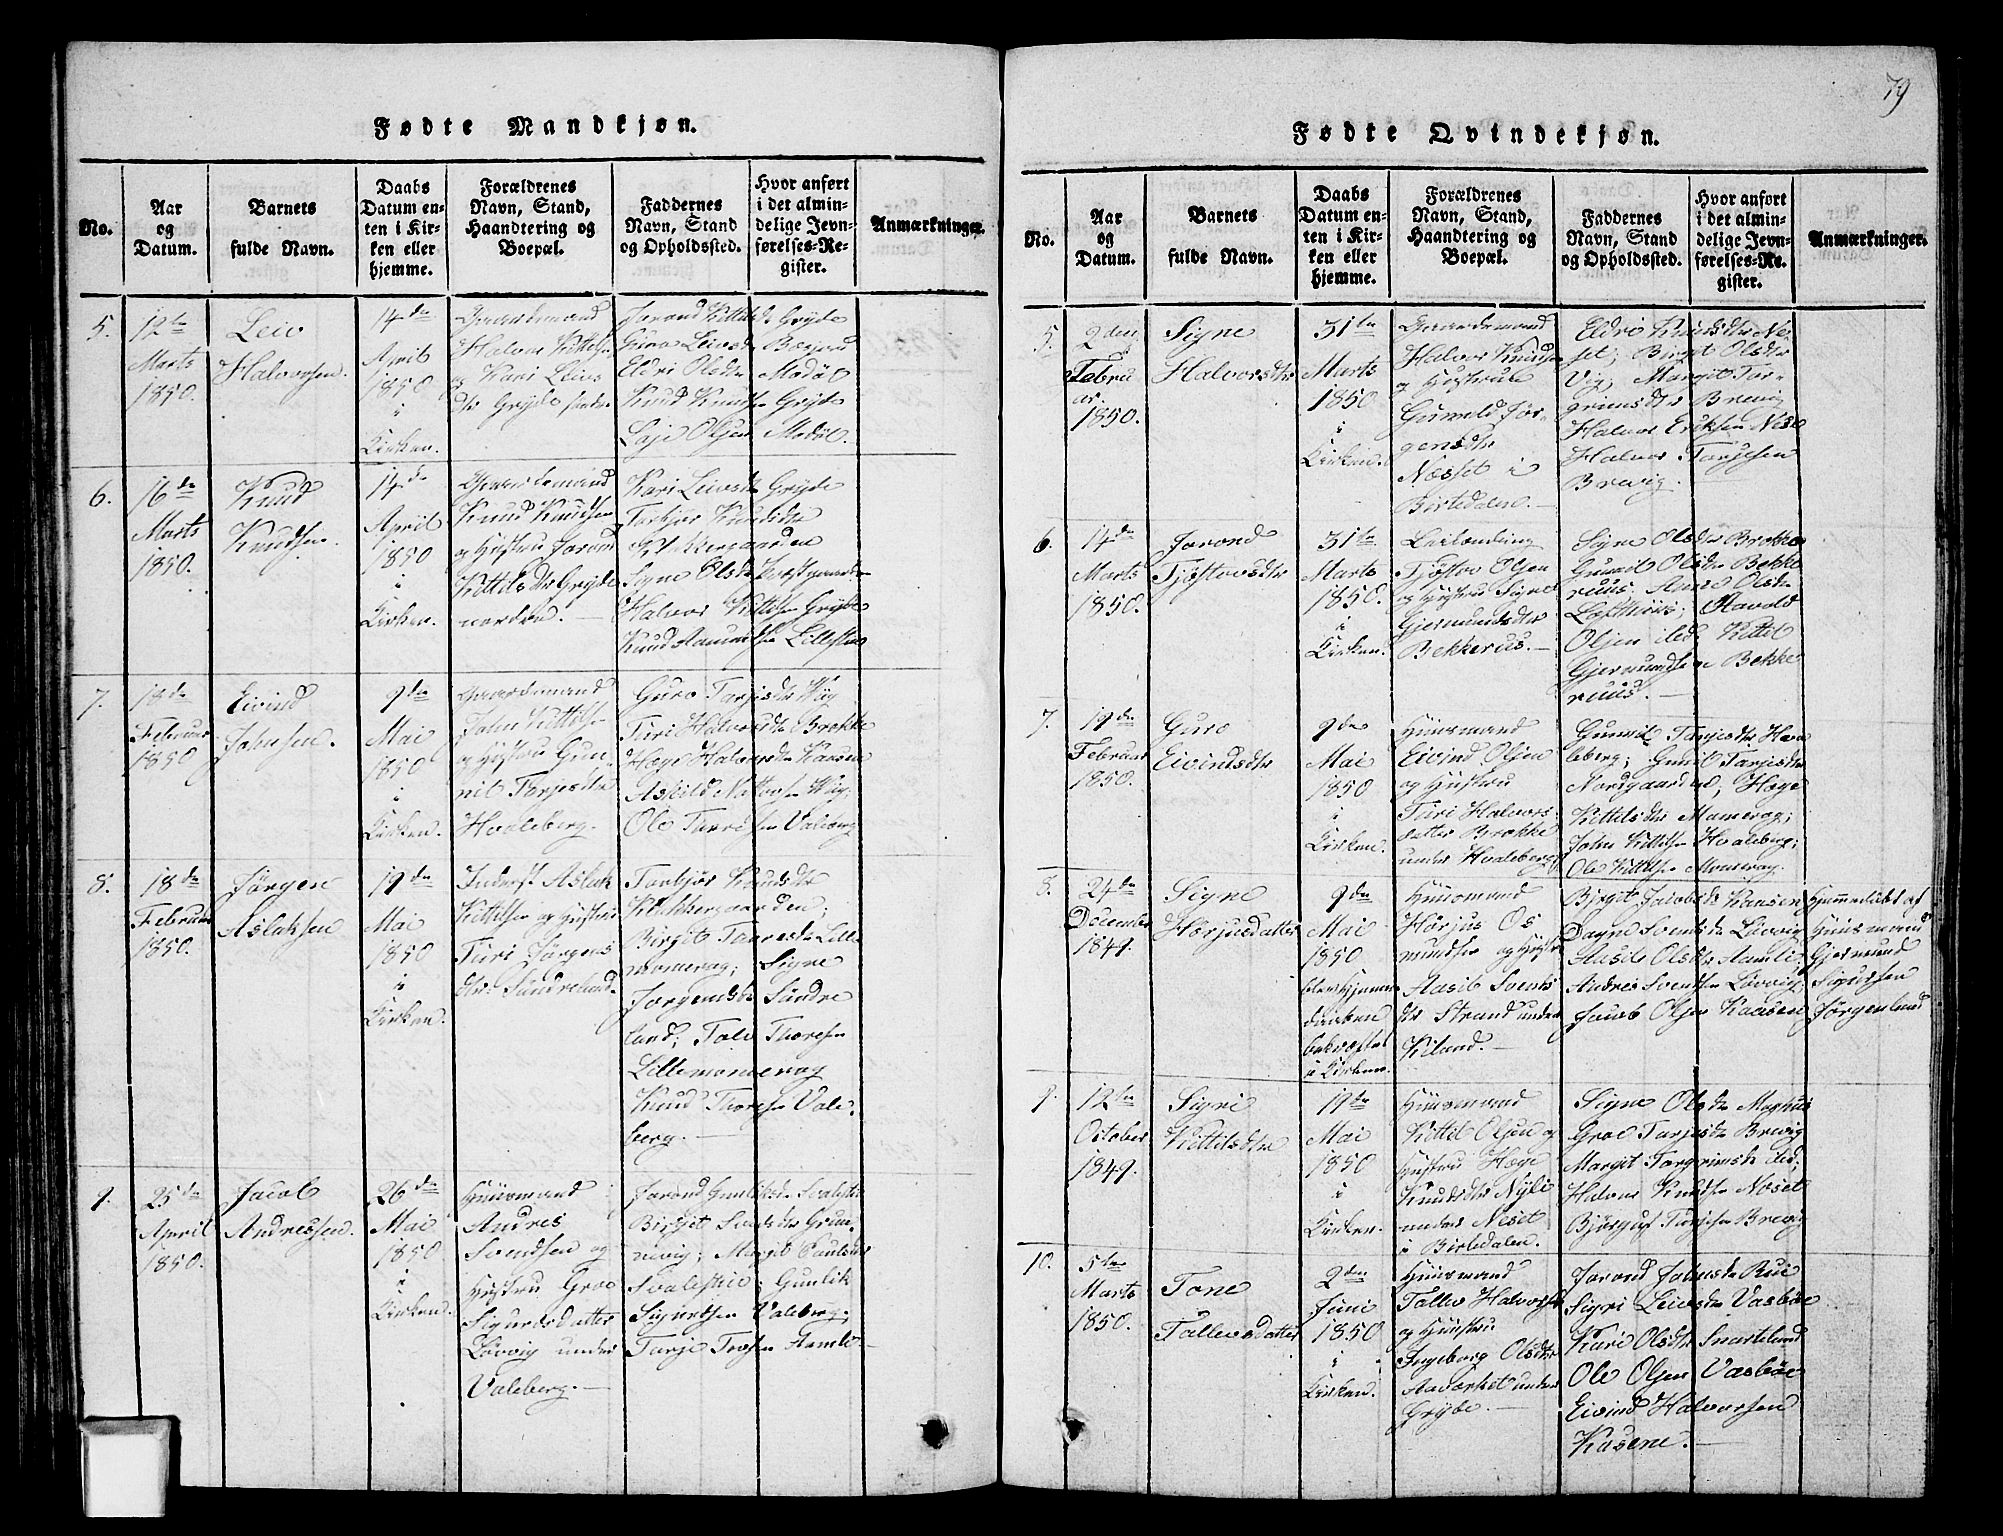 79
Fødte Mandkjøn.
No.
Aar
og
Datum.
Barnets
fulde Navn.
Daabs
Datum en-
ten i Kir-
ken eller
hjemme.
Forældrenes
Navn, Stand,
Haandtering og
Boepæl.
Faddernes
Navn, Stand
og Opholdssted.
Hvor anført
i det almin-
delige Jevn-
førelses-Re-
gister.
Anmærkninger.
5.
12te
Marts
1850.
Leiv
Halvorsen.
14de
April
1850
i
Kirken.
Gaardemand
Halvor Kittilsn
og Kari Leivs
dtr Gryde søndre
Jorond Kittilsdtr Gryde
Guro Leivsdtr
Eldri Olsdtr Modøl
Knud Knudsn Gryde
Loje Olsen Modøl.
6.
16de
Marts
1850.
Knud
Knudsen.
14de
April
1850
i
Kirken.
Gaardemand
Knud Knudsen
og Hustru Joron
Kittilsdtr Gryde
nordre.
Kari Leivsdtr Gryde
Torbjør Knudsdtr
Klokkergaarden
Signe Olsdtr
Halvor Kittilsn Gryde
Knud Aamundsn
7.
18de
Februar
1850
Eivind
Johnsen.
9de
Mai
1850
i
Kirken.
Gaardemand
John Kittilsn
og Hustru Gun
nil Tarjesdtr
Hvaleberg.
Guro Tarjesdtr Wig
Turi Halvorsdtr Brokke
Høge Halvorsdtr Kaasen
Askild Wig;
Ole Valeberg
8.
18de
Februar
1850.
Jørgen
Aslaksen
19de
Mai
1850
i
Kirken.
Inderst Aslak
Kittilsn og Hustru
Turi Jørgens
dtr Søndreland.
Torbjør Knudsdtr
Klokkergaarden;
Birgit Taresdtr Lille
momerag; Signe
Jørgensdtr Søndre
land; Tolv Thoresn
Lillemomerag
Knud Thoresn Vale-
berg.
9.
25de
April
1850.
Jacob
Andressen.
26de
Mai
1850
i
Kirken.
Huusmand
Andres
Svendsen og
Hustru Groe
Sigurdsdatter
Løvvig under
Valeberg.
Jorond Gunliksdtr
Birgit Svendsdtr Grun-
nevig; Margit Paulsdtr
Svalestue; Gunlik
Sigurdsen Valeberg;
Tarje Aamli.
Fødte Qvindekjøn.
No.
Aar
og
Datum.
Barnets
fulde Navn.
Daabs
Datum en-
ten i Kir-
ken eller
hjemme.
Forældrenes
Navn, Stand,
Haandtering og
Boepæl.
Faddernes
Navn, Stand
og Opholdssted.
Hvor anført
i det almin-
delige Jevn-
førelses-Re-
gister.
Anmærkninger.
5.
2den
Febru
ar
1850.
Signe
Halvorsdtr
31te
Marts
1850
i
Kirken.
Gaardemand
Halvor Knudsen
og Hustrue
Gunild Jør-
gensdtr
Næsset i
Birtedalen.
Eldri Knudsdtr Ne-
set; Birgit Olsdtr
Vig; Margit Tor-
grimsdtr Brevig
Halvor Eriksn Nese
Halvor Tarjesen
Brevig.
6.
14de
Marts
1850.
Jorond
Tjøstovsdtr
31te
Marts
1850.
i
Kirken.
Leilænding
Tjøstov Olsen
og Hustru Signe
Gjermundsdtr
Bekkeruus.
Signe Olsdtr Brokke
Gunild Olsdtr Bekke
ruus; Anne Olsdtr
Lofthuus; Havold
Olsen ibid Kittil
Gjermundsn Bekke
ruus.
7.
19de
Februar
1850.
Guro
Eivindsdtr
9de
Mai
1850
i
Kirken.
Huusmand
Eivind Olsen
og Hustru
Turi Halvors
datter Brokke
under Hvaleberg
Gunnil Tarjesdtr Hva
leberg; Gunil Tarjesdtr
Nordgaarden; Høge
Kittilsdtr Momerag;
John Kittilsn Hvaleberg;
Ole Kittilsn Momerag.
8.
24de
December
1849.
Signe
Hørjusdatter
9de
Mai
1850
blev Hjemme
daaben
bekræftet
i Kirken.
Huusmand
Hørjus Os
mundsn og Hustru
Aasil Svends
dtr Strand under
Kiland.
Birgit Jacobsdtr Kaasen
Dagne Svensdtr Løvvig
Aasile Olsdtr Aamli
Andres Svendsn Løvvig
Jacob Olsen Kaasen
Hjemmedøbt af
Huusmand
Gjermund
Sigurdsen
Jørgenlund
9.
12te
October
1849.
Sigri
Kittilsdtr
19de
Mai
1850
i
Kirken.
Huusmand
Kittil Olsen og
Hustru Høge
Knudsdtr Nyli
under Neset
i Birtedalen.
Signe Olsdtr
Groe Tarjesdtr Brevig
Margit Torgrimsdtr ibid;
Halvor Knudsn Neset
Bjørguf Tarjesn Brevig
10.
5te
Marts
1850.
Tone
Tallevsdatter
2den
Juni
1850
i
Kirken.
Huusmand
Tallev Halvorsn
og Hustru
Ingeborg Olsdtr
Aavorket under
Gryde.
Jorond Johnsdtr Rui
Sigri Leivsdtr Vasbøe
Kari Olsdtr Snarteland
Ole Olsen Vasbøe
Eivind Halvorsen
Kasene.